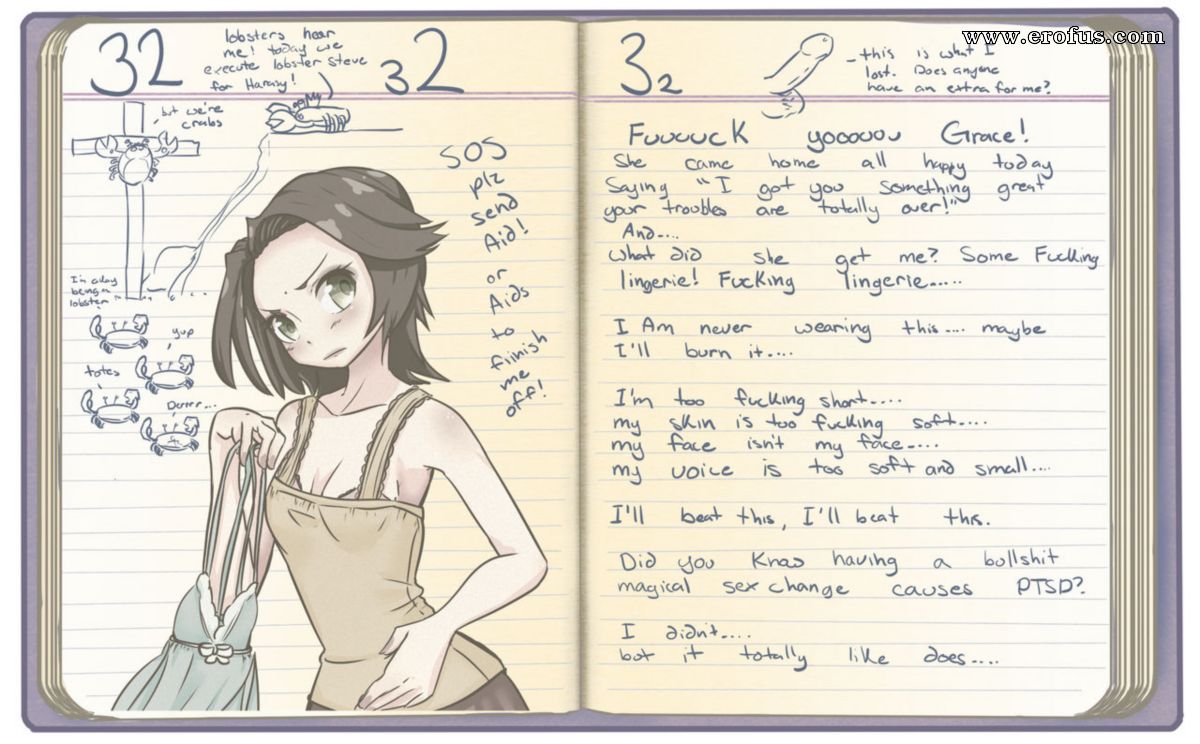 www.erofus.com
32
lobsters hear
me! today we
execute lobster Steve
for Harasy!
32
but we're
crabs
SOS
plz
send
Aid!
or
Aids
to
fiinish
me
off!
I'm okay
being a
lobster
yup
totes
Derrr...
32
this is what I
lost. Does anyone
have an extra for me?
Fuuuuck yooooou Grace!
She came home all happy today
Saying "I got you something great
your troubles are totally over!"
And....
What did she get me? Some Fucking
lingerie! Fucking lingerie.....
I Am never wearing this.... maybe
I'll burn it....
I'm too fucking short.....
my skin is too fucking soft....
my face isn't my face.....
my voice is too soft and small....
I'll beat this, I'll beat this.
Did you know having a bullshit
magical sex change causes PTSD?
I didn't....
but it totally like does....